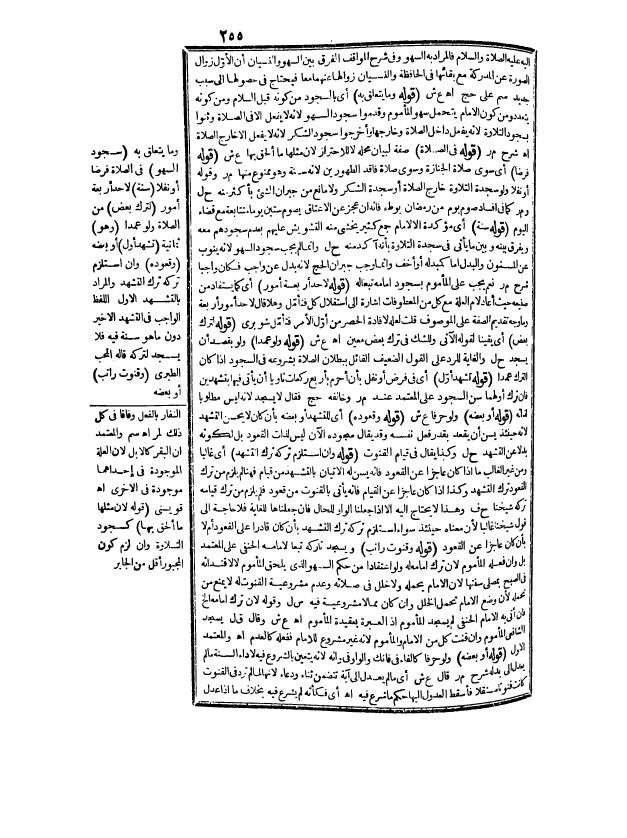 ٢٥٥
اليه عليه الصلاة والسلام فالمراد به السهو وفى شرح المواقف الفرق بين السهو والنسيان أن الاول زوال
الصورة عن المدركة مع بقائها فى الحافظة والنسيان زوالها عنهما معا فيحتاج فى حصولها الى سبب
جديد سم على حج اه ع ش (قوله وما يتعلق به) أى بالسجود من كونه قبل السلام ومن كونه
يتعدد ومن كون الامام يتحمل سهو المأموم وقدموا سجود السهو لانه لا يفعل الا فى الصلاة وثنوا
بسجود التلاوة لانه يفعل داخل الصلاة وخارجها وأخروا سجود الشكر لانه لا يفعل الا خارج الصلاة
اه شرح م ر (قوله فى الصلاة) صفة لبيان محله لا للاحتراز لان مثلها ما ألحق بها ع ش (قوله
فرضا) أى سوى صلاة الجنازة وسوى صلاة فاقد الطهورين لانه سنة وهو ممنوع منها م ر (قوله
أو نفلا) ولو سجدة التلاوة خارج الصلاة أو سجدة الشكر ولا مانع من جبران الشئ بأكثر منه ح ل
و م ر كما فى افساد صوم يوم من رمضان بوطء فانه ان عجز عن الاعتاق يصوم ستين يوما متتابعة مع قضاء
اليوم (قوله سنة) أى مؤكدة الا امام جمع كثير يخشى منه التشويش عليهم بعدم سجودهم معه
ويفرق بينه وبين ما يأتى فى سجدة التلاوة بأنه آكد منه ح ل وانما لم يجب سجود السهو لانه ينوب
عن المسنون والبدل اما كمبدله أو أخف وانما وجب جبران الحج لانه بدل عن واجب فكان واجبا
شرح م ر نعم يجب على المأموم بسجود امامه تبعا له (قوله لاحد أربعة أمور) أى كما يستفاد من
صنيعه حيث أعاد لام العلة مع كل من المعطوفات اشارة الى استقلال كل فتأمل وهلا قال لاحد أمور أربعة
وما وجه تقديم الصفة على الموصوف قلت لعله لافادة الحصر من أول الامر فتأمل شوبرى (قوله لترك
بعض) أى يقينا لقوله الآتى وللشك فى ترك بعض معين اه ع ش (قوله ولو عمدا) ولو بقصد أن
يسجد ح ل والغاية للرد على القول الضعيف القائل ببطلان الصلاة بشروعه فى السجود اذا كان
الترك عمدا (قوله تشهد أول) أى فى فرض أو نفل بأن أحرم بأربع ركعات ناويا أن يأتى فيها بتشهدين
فان ترك أولهما سن السجود على المعتمد عند م ر وخالفه حج فقال لا يسجد لانه ليس مطلوبا
لذاته (قوله أو بعضه) ولو حرفا ع ش (قوله وقعوده) أى للتشهد أو بعضه بأن كان لا يحسن التشهد
لانه حينئذ يسن أن يقعد بقدر فعل نفسه وقد يقال سجوده الآن ليس لذات القعود بل لكونه
بدلا عن التشهد ح ل وكذا يقال فى قيام القنوت (قوله وان استلزم تركه ترك التشهد) أى غالبا
ومن غير الغالب ما اذا كان عاجزا عن القعود فانه يسن له الاتيان بالتشهد من قيام فهنا لم يلزم من ترك
القعود ترك التشهد وكذا اذا كان عاجزا عن القيام فانه يأتى بالقنوت من قعود فلم يلزم من ترك قيامه
تركه شيخنا ح ف وهذا لا يحتاج اليه الا اذا جعلنا الواو للحال فان جعلناها للغاية فلا حاجة الى
قول شيخنا غالبا لان معناه حينئذ سواء استلزم تركه ترك التشهد بأن كان قادرا على القعود أم لا
بأن كان عاجزا عن القعود (قوله وقنوت راتب) ويسجد تاركه تبعا لامامه الحنفى على المعتمد
بل وان فعله المأموم لان ترك امامه له ولو اعتقادا من حكم السهو الذى يلحق المأموم لا لاقتدائه
فى الصبح بمصلى سنتها لان الامام يحمله ولا خلل فى صلاته وعدم مشروعية القنوت له لا يمنع من
تحمله لان وضع الامام تحمل الخلل وان كان مما لا مشروعية فيه س ل وقوله لان ترك امامه الخ
فان أتى به الامام الحنفى لم يسجد المأموم اذ العبرة بعقيدة المأموم اه وقال ق ل يسجد
الشافعى المأموم وان قنت كل من الامام والمأموم لانه غير مشروع للامام ففعله كالعدم اه والمعتمد
الاول (قوله أو بعضه) ولو حرفا كالفاء فى فانك والواو فى وانه لانه يتعين بالشروع فيه لاداء السنة ما لم
يعدل الى بدله شرح م ر قال ع ش أى ما لم يعدل الى آية تتضمن ثناء ودعاء لانها لما لم ترد فى القنوت
كانت قنوتا مستقلا فأسقط العدول اليها حكم ما شرع فيه اه أى فكأنه لم يشرع فيه بخلاف ما اذا عدل
وما يتعلق به (سجود
السهو) فى الصلاة فرضا
أو نفلا (سنة) لاحد أربعة
أمور (لترك بعض) من
الصلاة ولو عمدا (وهو)
ثمانية (تشهد أول) أو بعضه
(وقعوده) وان استلزم
تركه ترك التشهد والمراد
بالتشهد الاول اللفظ
الواجب فى التشهد الاخير
دون ما هو سنة فيه فلا
يسجد لتركه قاله المحب
الطبرى (وقنوت راتب)
أو بعضه
النفار بالفعل وفاقا فى كل
ذلك لمر اه سم والمعتمد
ان البقر كالابل لان العلة
الموجودة فى احداهما
موجودة فى الاخرى اه
قويسنى (قوله لان مثلها
ما ألحق بها) كسجود
التلاوة وان لزم كون
المجبور أقل من الجابر